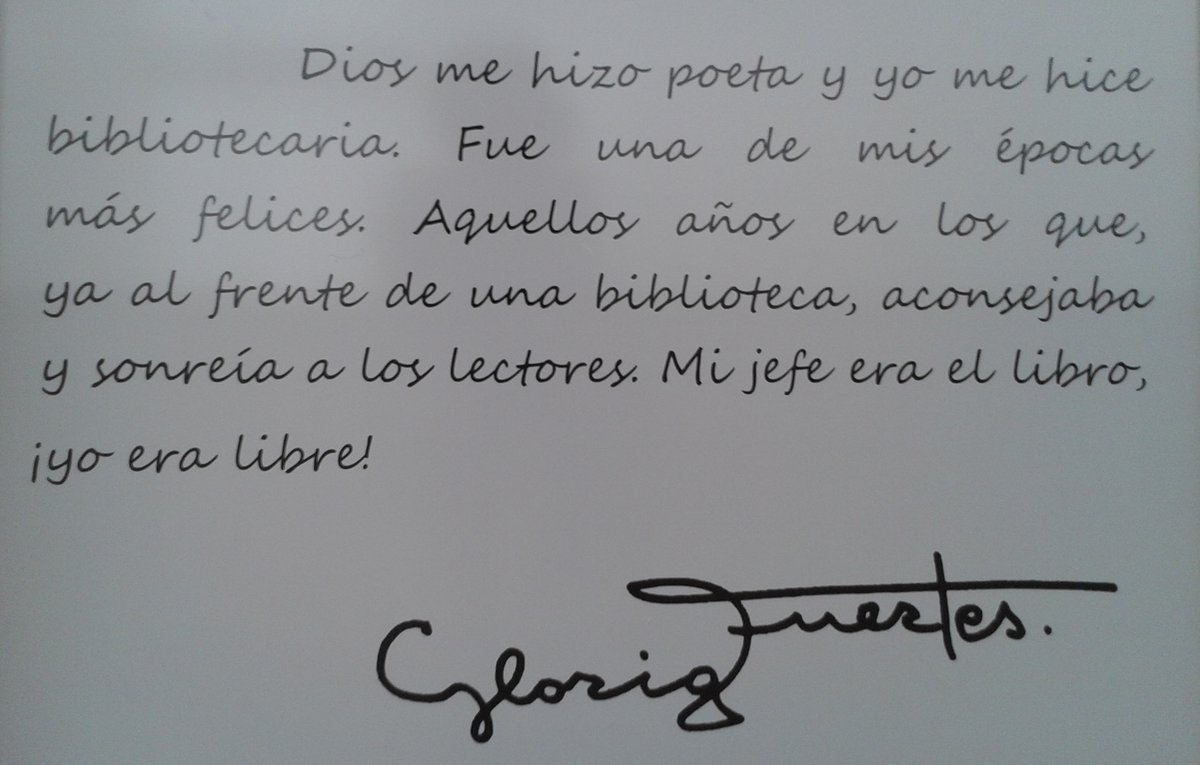 Dios me hizo poeta y yo me hice
bibliotecaria. Fue una de mis épocas
más felices. Aquellos años en los que,
ya al frente de una biblioteca, aconsejaba
y sonreía a los lectores. Mi jefe era el libro,
¡yo era libre!
Gloria Fuertes.